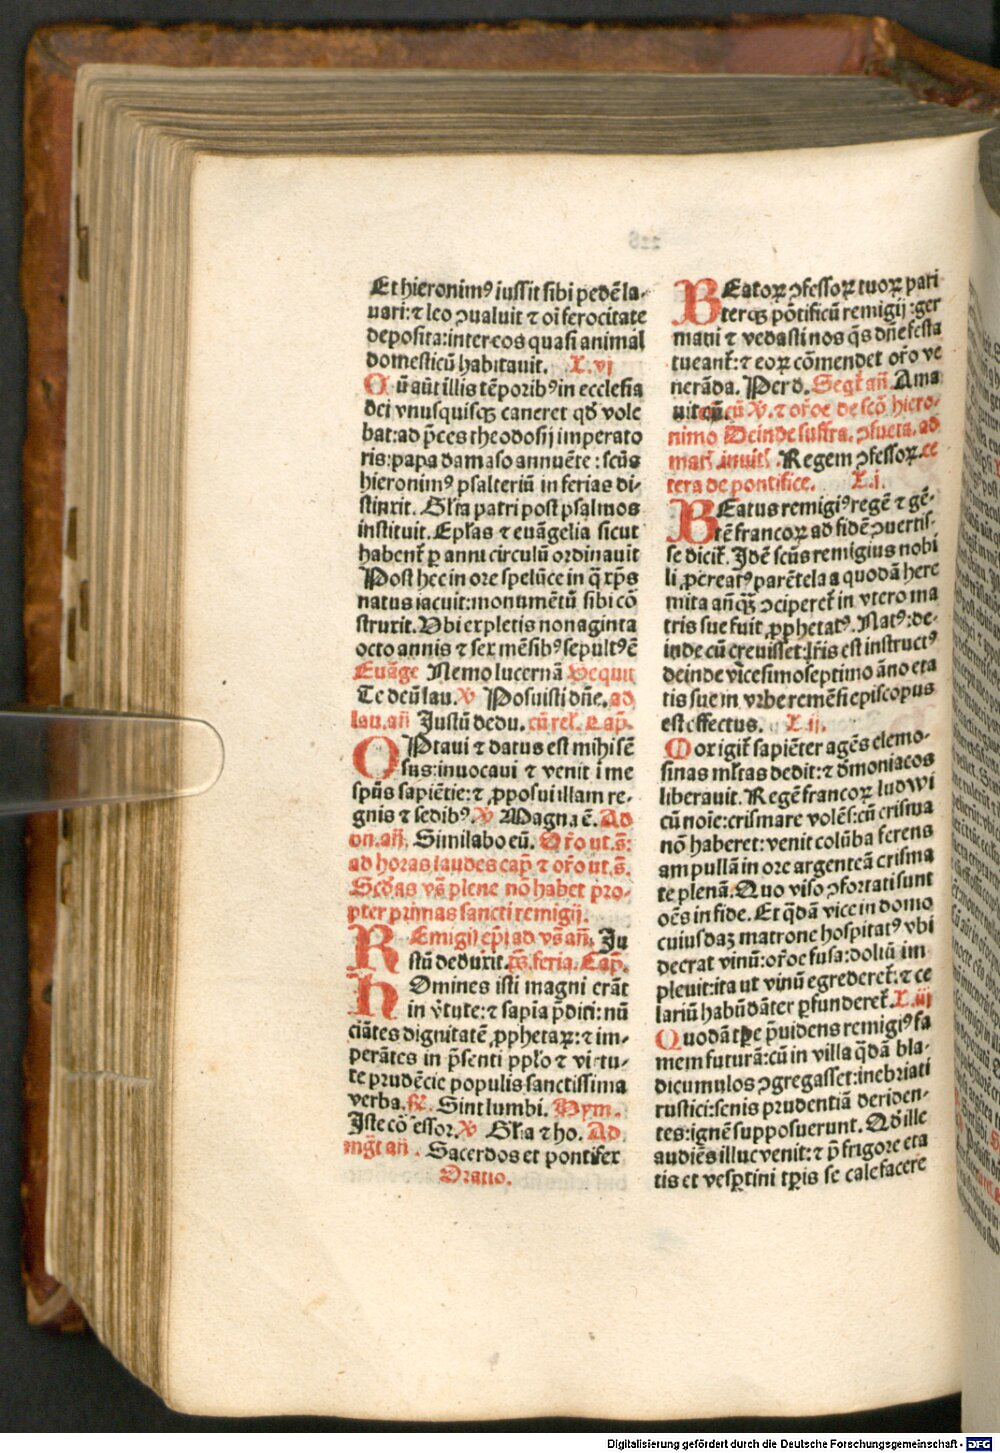 Et hieronimꝰ iussit sibi pedē la-
uari: ⁊ leo ↄualuit ⁊ oī ferocitate
deposita: inter eos quasi animal
domesticū habitauit. L. vj
Cū aūt illis tēporibꝰ in ecclesia
dei vnusquisqꝫ caneret qd̄ vole
bat: ad p̄ces theodosij imperato
ris: papa damaso annuēte: scūs
hieronimꝰ psalteriū in ferias di-
stinxit. Gl̄ia patri post psalmos
instituit. Epl̄as ⁊ euāgelia sicut
habent̄ ꝑ anni circulū ordinauit
Post hec in ore spelūce in q̄ xp̄s
natus iacuit: monumētū sibi cō
struxit. Vbi expletis nonaginta
octo annis ⁊ sex mēsibꝰ sepultꝰ ē
Euāge Nemo lucernā Sequit̄
Te deū lau. ℣ Posuisti dn̄e. ad
lau. an̄ Justū dedu. cū rel̄. Cap̄.
OPtaui ⁊ datus est mihi sē
sus: inuocaui ⁊ venit ī me
spūs sapiētie: ⁊ ꝓposui illam re-
gnis ⁊ sedibꝰ. ℣ Magna ē. Ad
on. an̄. Similabo eū. Or̄o ut. s̄:
ad horas laudes cap̄ ⁊ or̄o ut. s̄.
Scd̄as vs̄ plene nō habet pro-
pter primas sancti remigij.
REmigij ep̄i ad vs̄ an̄. Ju
stū deduxit. ps̄. feria. Cap̄.
HOmines isti magni erāt
in v̄tute: ⁊ sapīa p̄diti: nū
ciātes dignitatē ꝓphetaꝝ: ⁊ im-
perātes in p̄senti ppl̄o ⁊ virtu-
te prudēcie populis sanctissima
verba. ℟. Sint lumbi. Hym.
Iste cōfessor. ℣ Gl̄ia ⁊ ho. Ad
mḡt an̄. Sacerdos et pontifex
Oratio.
BEatoꝝ ↄfessoꝝ tuoꝝ pari
terqꝫ pōtificū remigij: ger
mani ⁊ vedasti nos q̄s dn̄e festa
tueant̄: ⁊ eoꝝ cōmendet or̄o ve
nerāda. Per d. Seqt̄ an̄. Ama
uit eū. cū ℣. ⁊ or̄oe de scō hiero-
nimo Deinde suffra. ↄsueta. ad
mat̄. inuit̄. Regem ↄfessoꝝ. ce
tera de pontifice. L. i.
BEatus remigiꝰ regē ⁊ gē-
tē francoꝝ ad fidē ↄuertis-
se dicit̄. Idē scūs remigius nobi
li ꝓcreatꝰ parētela a quodā here
mita an̄qꝫ ↄciperet̄ in vtero ma
tris sue fuit ꝓphetatꝰ. Natꝰ: de-
inde cū creuisset: lr̄is est instructꝰ
deinde vicesimoseptimo āno eta
tis sue in vrbe remēsi episcopus
est effectus. L. ij.
Mox igit̄ sapiēter agēs elemo-
sinas ml̄tas dedit: ⁊ dēmoniacos
liberauit. Regē francoꝝ ludwi
cū noīe: crismare volēs: cū crisma
nō haberet: venit colūba ferens
ampullā in ore argenteā crisma
te plenā. Quo viso ↄfortati sunt
oēs in fide. Et q̄dā vice in domo
cuiusdaꝫ matrone hospitatꝰ vbi
decrat vinū: or̄oe fusa: doliū im
pleuit: ita ut vinū egrederet̄: ⁊ ce
lariū habūdāter ꝑfunderet̄. L. iij
Quodā tp̄e p̄uidens remigiꝰ fa
mem futurā: cū in villa q̄dā bla-
di cumulos ↄgregasset: inebriati
rustici: senis prudentiā deriden-
tes: ignē supposuerunt. Qd̄ ille
audiēs illuc venit: ⁊ p̄ frigore eta
tis et vesꝑtini tp̄is se calefacere
Digitalisierung gefördert durch die Deutsche Forschungsgemeinschaft - DFG